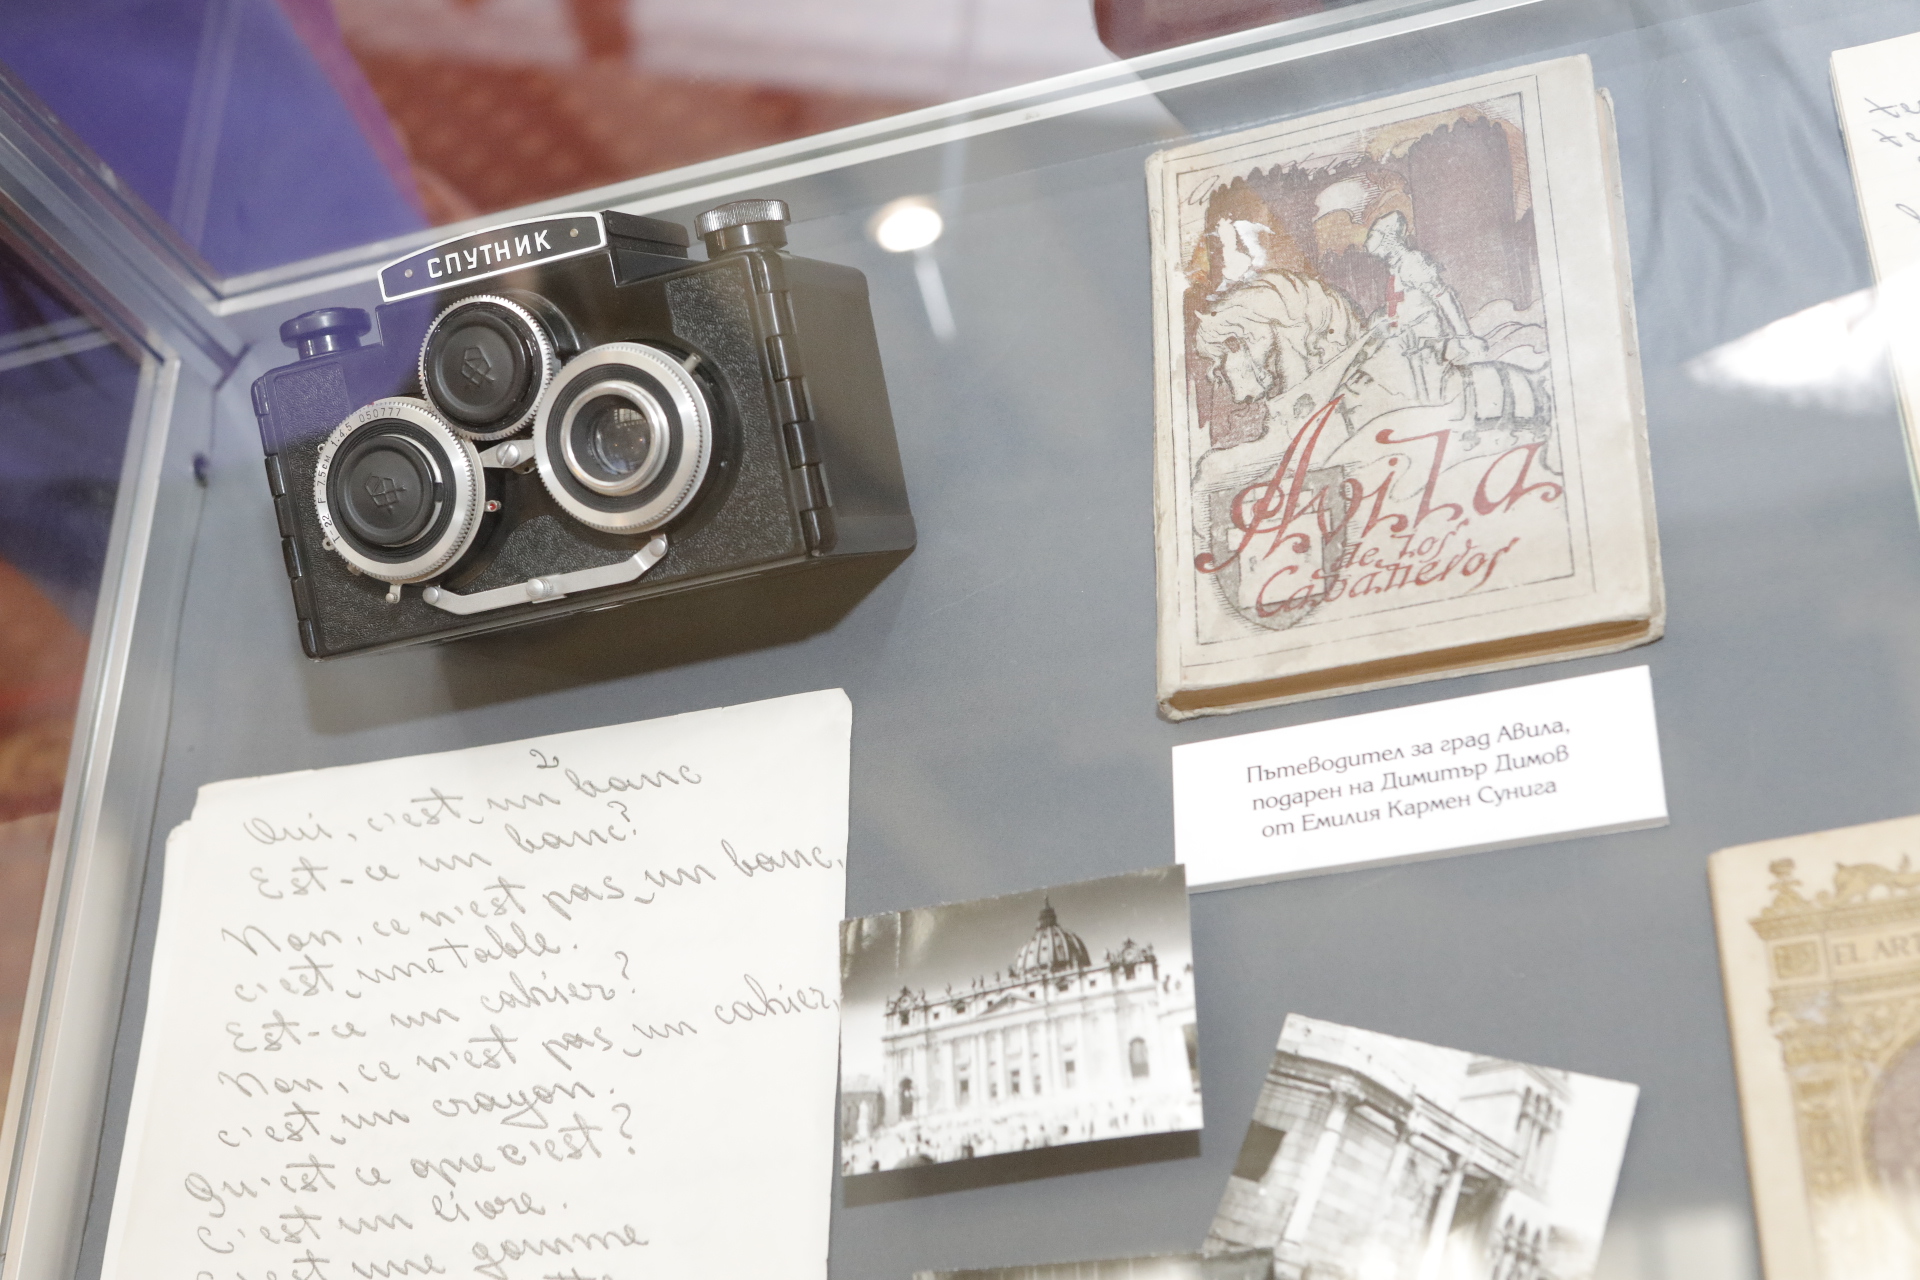 СПУТНИК
1:4.5 050777
F-7,5см
22
Avila
de los
Caballeros
Пътеводител за град Авила,
подарен на Димитър Димов
от Емилия Кармен Сунига
2
Oui, c'est un banc
Est-ce un banc?
Non, ce n'est pas un banc,
c'est une table.
Est-ce un cahier?
Non, ce n'est pas un cahier,
c'est un crayon.
Qu'est ce que c'est?
C'est un livre.
C'est une gomme
EL ART
te
te